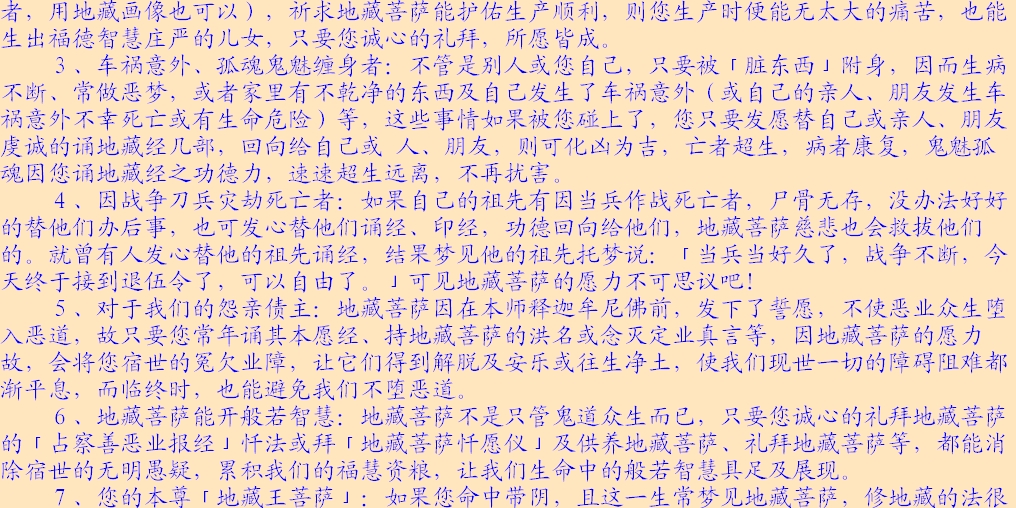 者，用地藏画像也可以），祈求地藏菩萨能护佑生产顺利，则您生产时便能无太大的痛苦，也能
生出福德智慧庄严的儿女，只要您诚心的礼拜，所愿皆成。
3、车祸意外、孤魂鬼魅缠身者：不管是别人或您自己，只要被「脏东西」附身，因而生病
不断、常做恶梦，或者家里有不乾净的东西及自己发生了车祸意外（或自己的亲人、朋友发生车
祸意外不幸死亡或有生命危险）等，这些事情如果被您碰上了，您只要发愿替自己或亲人、朋友
虔诚的诵地藏经几部，回向给自己或 人、朋友，则可化凶为吉，亡者超生，病者康复，鬼魅孤
魂因您诵地藏经之功德力，速速超生远离，不再扰害。
4、因战争刀兵灾劫死亡者：如果自己的祖先有因当兵作战死亡者，尸骨无存，没办法好好
的替他们办后事，也可发心替他们诵经、印经，功德回向给他们，地藏菩萨慈悲也会救拔他们
的。就曾有人发心替他的祖先诵经，结果梦见他的祖先托梦说：「当兵当好久了，战争不断，今
天终于接到退伍令了，可以自由了。」可见地藏菩萨的愿力不可思议吧！
5、对于我们的怨亲债主：地藏菩萨因在本师释迦牟尼佛前，发下了誓愿，不使恶业众生堕
入恶道，故只要您常年诵其本愿经、持地藏菩萨的洪名或念灭定业真言等，因地藏菩萨的愿力
故，会将您宿世的冤欠业障，让它们得到解脱及安乐或往生净土，使我们现世一切的障碍阻难都
渐平息，而临终时，也能避免我们不堕恶道。
6、地藏菩萨能开般若智慧：地藏菩萨不是只管鬼道众生而已，只要您诚心的礼拜地藏菩萨
的「占察善恶业报经」忏法或拜「地藏菩萨忏愿仪」及供养地藏菩萨、礼拜地藏菩萨等，都能消
除宿世的无明愚疑，累积我们的福慧资粮，让我们生命中的般若智慧具足及展现。
7、您的本尊「地藏王菩萨」：如果您命中带阴，且这一生常梦见地藏菩萨，修地藏的法很